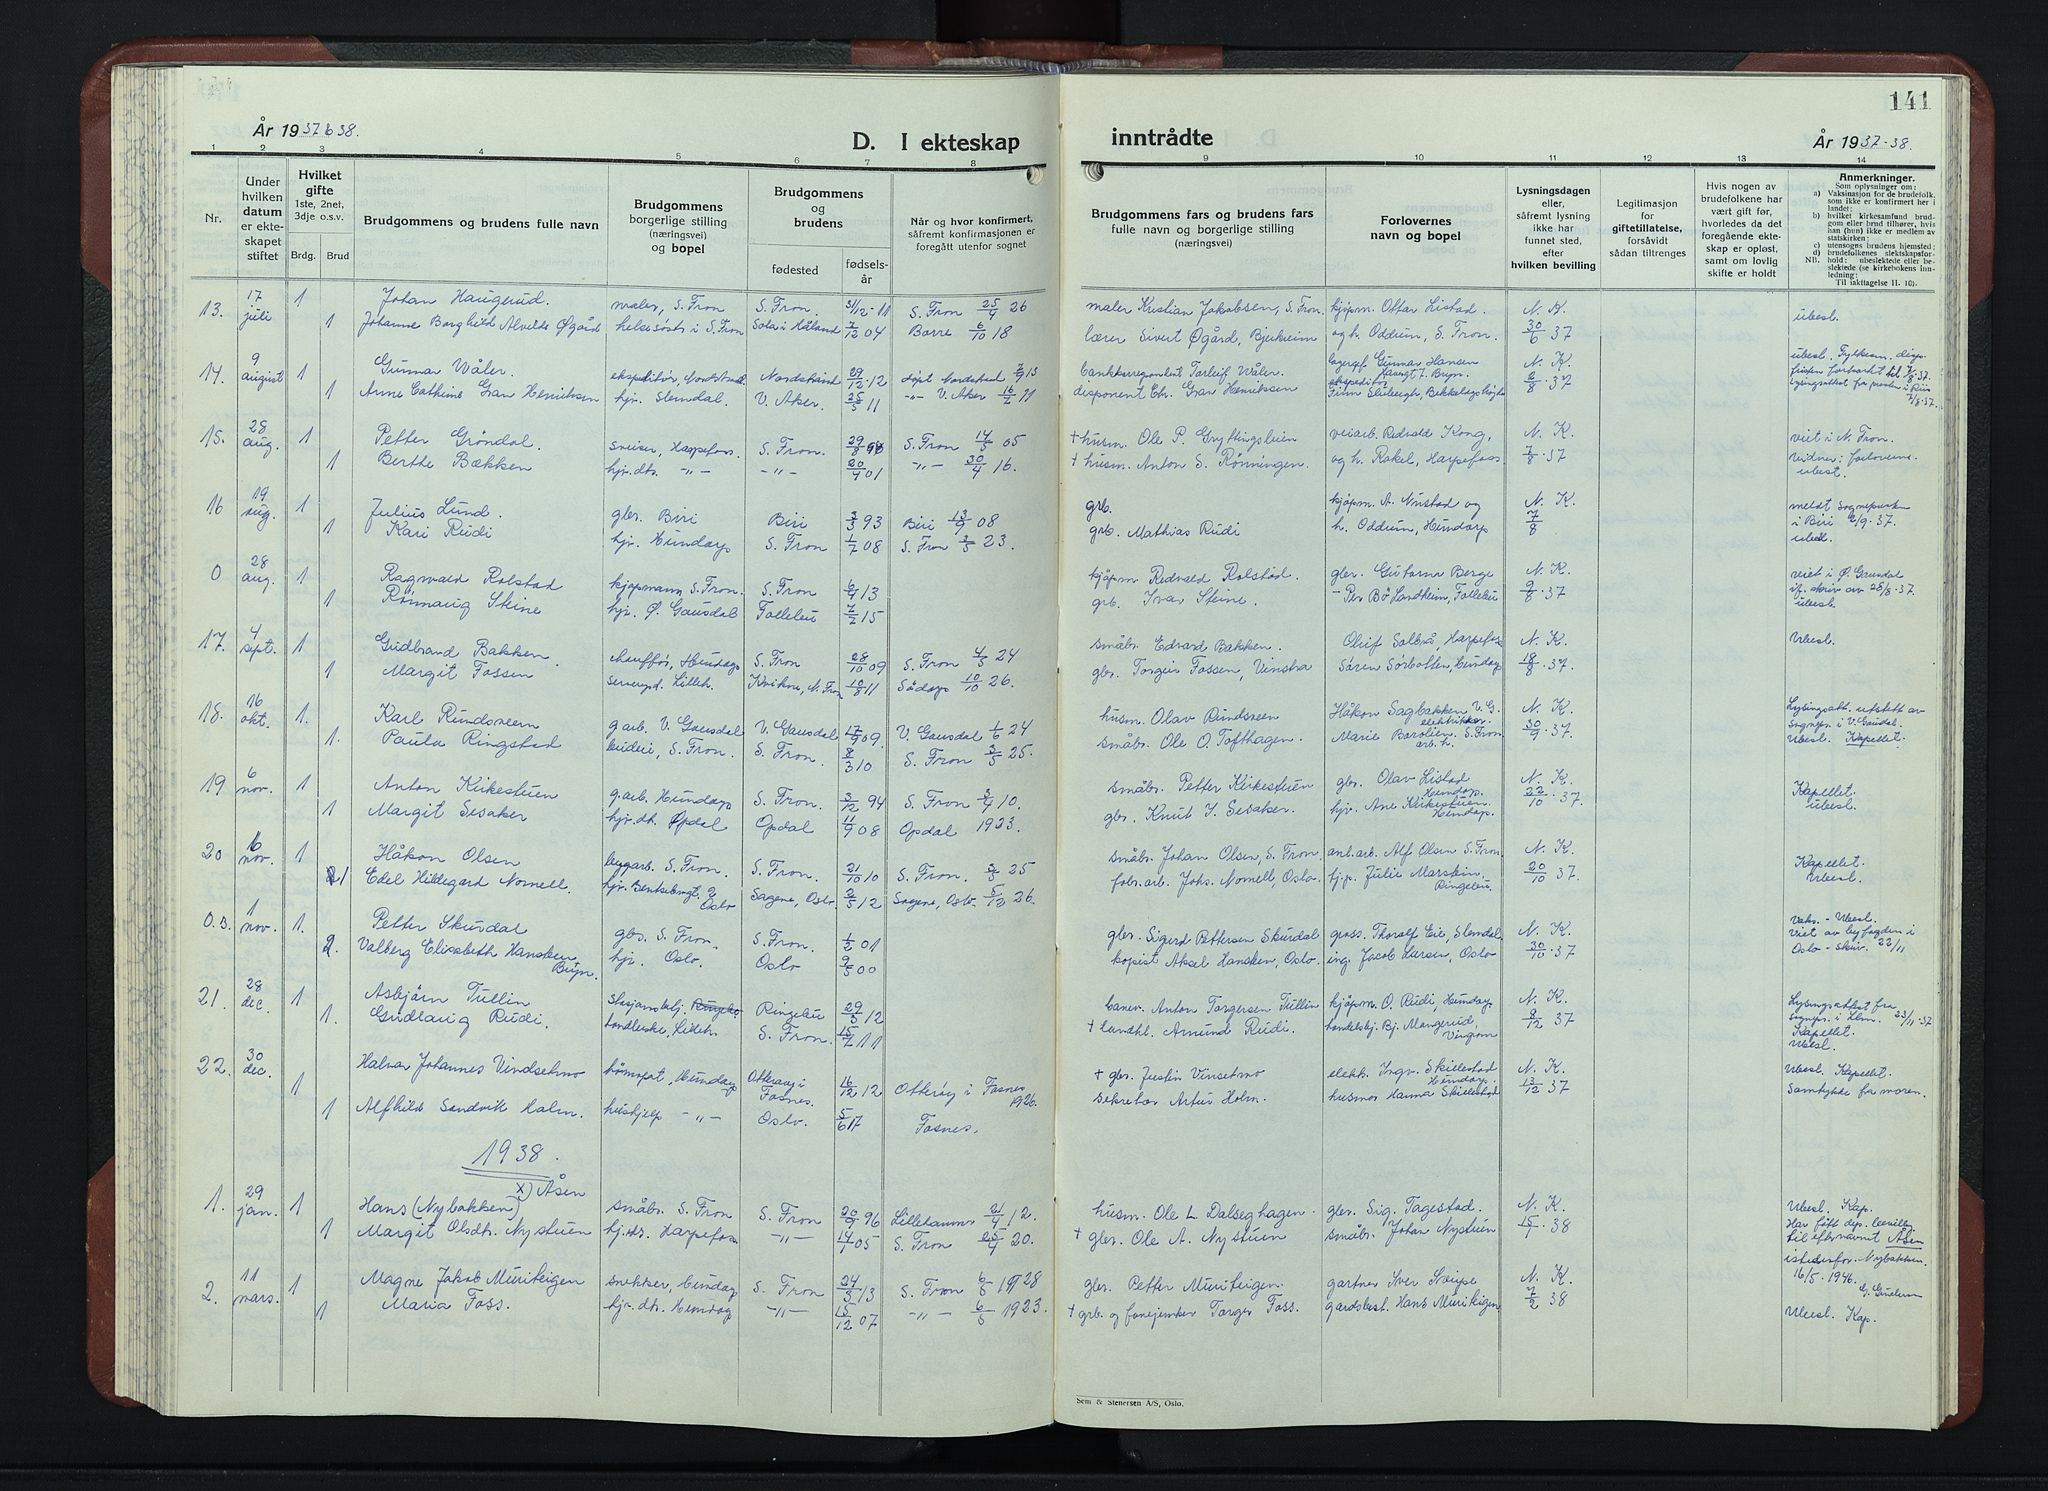 141
År 1937 & 38.
D. I ekteskap inntrådte
År 1937-38.
1 2 3 4 5 6 7 8 9 10 11 12 13 14
Nr.
Under hvilken datum er ekteskapet stiftet
Hvilket gifte 1ste, 2net, 3dje o.s.v.
Brdg. Brud
Brudgommens og brudens fulle navn
Brudgommens borgerlige stilling (næringsvei) og bopel
Brudgommens og brudens
fødested
fødselsår
Når og hvor konfirmert, såfremt konfirmasjonen er foregått utenfor sognet
Brudgommens fars og brudens fars fulle navn og borgerlige stilling (næringsvei)
Forlovernes navn og bopel
Lysningsdagen eller, såfremt lysning ikke har funnet sted, efter hvilken bevilling
Legitimasjon for giftetillatelse, forsåvidt sådan tiltrenges
Hvis nogen av brudefolkene har vært gift før, hvorledes da det foregående ekteskap er opløst, samt om lovlig skifte er holdt
Anmerkninger.
Som oplysninger om:
a) Vaksinasjon for de brudefolk, som ikke er konfirmert her i landet;
b) hvilket kirkesamfund brudgom eller brud tilhører, hvis han (hun) ikke er medlem av statskirken;
c) utensogns brudens hjemsted;
d) brudefolkenes slektskapsforhold: ubeslektede eller beslektede (se kirkebokens innledning;
NB.
Til iakttagelse II. 10).
13. 17 juli 1 Johan Haugerud. maler, S. Fron S. Fron 31/12-11 S. Fron 25/4 26 maler Kristian Jakobsen, S. Fron. kjøpm. Ottar Listad N. K. ubesl.
1 Johanne Borghild Alvilde Øgård helsesøst. i S. Fron 04 Borre 6/10 18 lærer Sivert Øgård, Bjerkreim og h. Oddrun, S. Fron. 30/6 37
14. 9 august 1 Gunnar Wåler. Nordstrand 29/12-12 Wåler. Gunnar Hansen N. K. ubesl.
1 Anne Cathrine Gran Henriksen hjv. Slemdal. V. Aker. 25/5 11 V. Aker 16/2 disponent Chr. Gran Henriksen 6/8 37
15. 28 aug. 1 Petter Grøndal. S. Fron. 29/8 98 S. Fron 14/5 05 + husm. Ole P. Gryttingslien veiarb. Redvald Kong, N. K. viet i N. Fron.
1 Berthe Bækken hjv. dtr. -"- -"- 20/4 01 -"- 30/4 16. + husm. Anton S. Rønningen. og h. Rakel, Harpefoss 7/8 37 ubesl.
16 19 aug. 1 Julius Lund. gbr. Biri Biri 3/3 93 Biri 13/9 08 grb. kjøpm. A. og N. K. meldt sogneprest i Biri 2/9. 37.
1 Kari Rudi hjv. Hundorp S. Fron 1/7 08 S. Fron 3/5 23. grb. Mathias Rudi h. Oddrun, Hundorp 7/8 ubesl.
0 28 aug. 1 Ragnvald Rolstad kjøpmann, S. Fron. S. Fron 13 kjøpm. Redvald Rolstad. gbr. Guttorm Berge N. K. viet i Ø. Gausdal
1 Rønnaug Steine hjv. Ø. Gausdal Follebu 7/2 15 grb. Ivar Steine. - Per Bø Landheim, Follebu 9/8 37 if. skriv av 28/8 37. ubesl.
17. 4 sept. 1 Gudbrand Bakken. chauffør, Hundorp S. Fron 28/10 09 S. Fron 4/5 24 småbr. Edvard Bakken. Harpefoss N. K. Ubesl.
1 Margit Fossen Lilleh. Kvikne, N. Fron 10/8 11 Sødorp 10/10 26. gbr. Torgeir Fossen, Vinstra Søren Sørbotten, Hundorp 18/8 37.
18. 16 okt. 1. Karl Rundsveen g.arb. V. Gausdal V. Gausdal 09. V. Gausdal 1/6 24 husm. Olav Rundsveen Håkon Sagbakken V. G. elektriker. N. K. Lysingsatt. utstett av sognepr. i V. Gausdal.
1. Paula Ringstad budeie, S. Fron. S. Fron. 8/3 10 S. Fron 3/5 25. småbr. Ole O. Tofthagen. Marie S. Fron 30/9 37. Ubesl. Kapellet.
19 6 nov. 1 Anton Kirkestuen g.arb. Hundorp S. Fron. 3/12 94 S. Fron 3/4 10. småbr. Petter Kirkestuen gbr. Olav Listad Hundorp. N. K. Kapellet.
1 Margit Sesaker hjv. dtr. Opdal Opdal 11/9 08 Opdal 1923. gbr. Knut Sesaker hjv. Ane Kirkestuen Hundorp. 22/10 37. ubesl.
20 6 nov. 1 Håkon Olsen S. Fron. S. Fron. 21/10 10 S. Fron. 3/5 25 småbr. Johan Olsen, S. Fron. anl.arb. Alf Olsen S. Fron. N. K. Kapellet.
1 Edel Hildegard Nomell. Oslo Sagene, Oslo. 2/5 12 Sagene, Oslo 5/12 26. fabr.arb. Johs. Nomell, Oslo. Julie Marstein, Ringebu 20/10 37. Ubesl.
0.3. 1 nov. 1. Petter Skurdal gbr. S. Fron. S. Fron. 1/2 01 gbr. Sigurd Pettersen Skurdal Thoralf Lie, Slemdal N. K. Vaks. - Ubesl.
2. Valberg Elisabeth Hansken Bruyn. hjv. Oslo. Oslo 9/5 00 kopist Aksel Hansken, Oslo. ing. Jacob Larsen, Oslo 30/10 37 Viet av byfogden i Oslo - skriv. 22/11
21. 28 dec. 1 Asbjørn Tullin Ringebu 29/5 12 banev. Anton Torgersen Tullin kjøpm. O. Rudi, Hundorp N. K. Lysingsattest fra sognepr. i 23/11 37
1. Gudlaug Rudi. Lilleh. S. Fron. 15/7 11 + landhl. Amund Rudi. handelsbj. Bj. Mangerud, 8/12 37 Kapellet. Ubesl.
22. 30 dec. 1 Halvar Johannes Vindsetmo Hundorp Otterøy i Fosnes. 16/12 12 Otterøy i Fosnes 1926. + gbr. Justin Vinsetmo elekt. Ingv. Skjelestad Hundorp. N. K. Ubesl. Kapellet.
1 Alfhild Sandvik Holm. hushjelp -"- Oslo. 5/6 17 Fosnes. sekretær Artur Holm. husmor Hanna Skjelestad 13/12 37 Samtykke fra moren.
1938.
1. 29 jan. 1 Hans (Nybakken) x) Åsen småbr. S. Fron S. Fron 20/9 96 Lillehammer 21/4 12. husm. Ole L. Dalseghagen. gbr. Sig. Tagestad. N. K. Ubesl. Kap.
1 Margit Olsdtr. Nystuen hj.dtr. Harpefoss -"- 14/1 05 S. Fron 25/4 20. + gbr. Ole A. Nystuen småbr. Johan Nystuen 15/1 38 Har fått dep. bevilling til efternavnet Åsen istedenfor Nybakken. 16/5. 1946. G. Gudem
2. 11 mars. 1 Magne Jakob Muriteigen snekker, Hundorp S. Fron 24/3 13 S. Fron 6/5 1928 gbr. Petter Muriteigen. gartner Iver N. K.
1 Maria Foss. hjv. dtr. Hundorp -"- 15/12 07 -"- 6/5 1923. + grb. og fanejunker Torger Foss. gardsbest. Hans Muriteigen 7/2 38 Ubesl. Kap.
Sem & Stenersen A/S, Oslo.